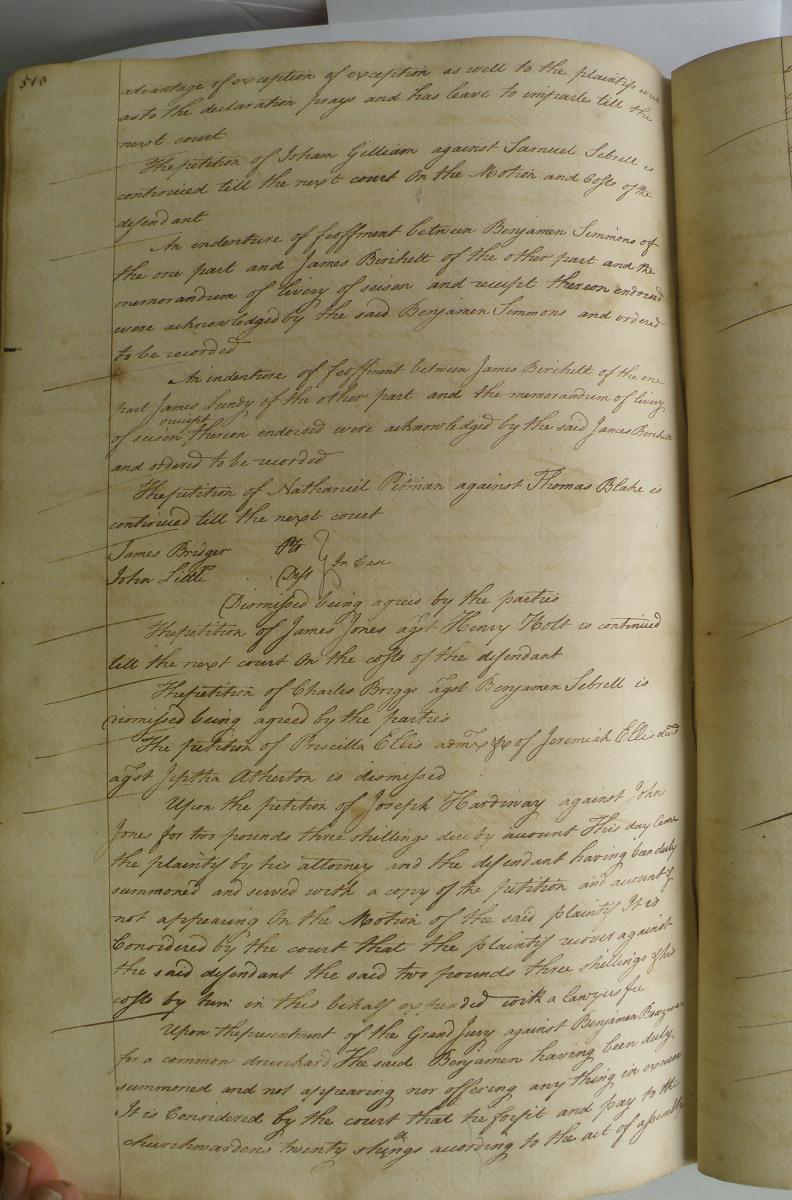 510
advantage of exception of exception as well to the plaintifs writ
as to the declaration prays and has leave to imparle till the
next court
The petition of Isham Gilliam against Samuel Sebrell is
continued till the next court On the Motion and Costs of the
defendant
An indenture of feoffment between Benjamen Simmons of
the one part and James Birchett of the other part and the
memorandum of livery of seisen and receipt thereon endorsed
were acknowledged by the said Benjamen Simmons and ordered
to be recorded
An indenture of feoffment between James Birchett of the one
part James Lundy of the other part and the memorandum of livery
receipt
of seisen thereon endorsed were acknowledged by the said James Birchett
and ordered to be recorded
The petition of Nathaniel Pitman against Thomas Blake is
continued till the next court
James Bridger Plt
John Little Deft In Case
Dismissed being agreed by the parties
The petition of James Jones agst Henry Holt is continued
till the next court On the costs of the defendant
The petition of Charles Briggs agst Benjamen Sebrell is
dismissed being agreed by the parties
The petition of Priscilla Ellis admx &c of Jeremiah Ellis decd
agst Jeptha Atherton is dismissed
Upon the petition of Joseph Hardiway against John
Jones for two pounds three shillings due by account This day Came
the plaintif by his attorney and the defendant having been duly
summoned and served with a copy of the petition and account &
not appearing On the Motion of the said plaintif It is
Considered by the court that the plaintif recover against
the said defendant the said two pounds three shillings & his
costs by him in this behalf expended with a lawyers fee
Upon the presentment of the Grand Jury against Benjamen
for a common drunkard The said Benjamen having been duly
summoned and not appearing nor offering any thing in excuse
It is Considered by the court that he forfit and pay to the
churchwardens twenty shings according to the act of assembly